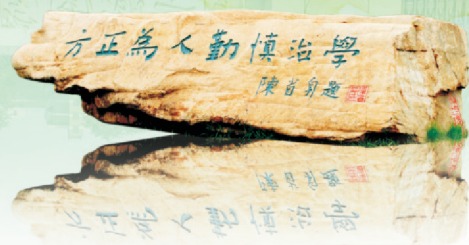 方正為人勤慎治學
陳省身題